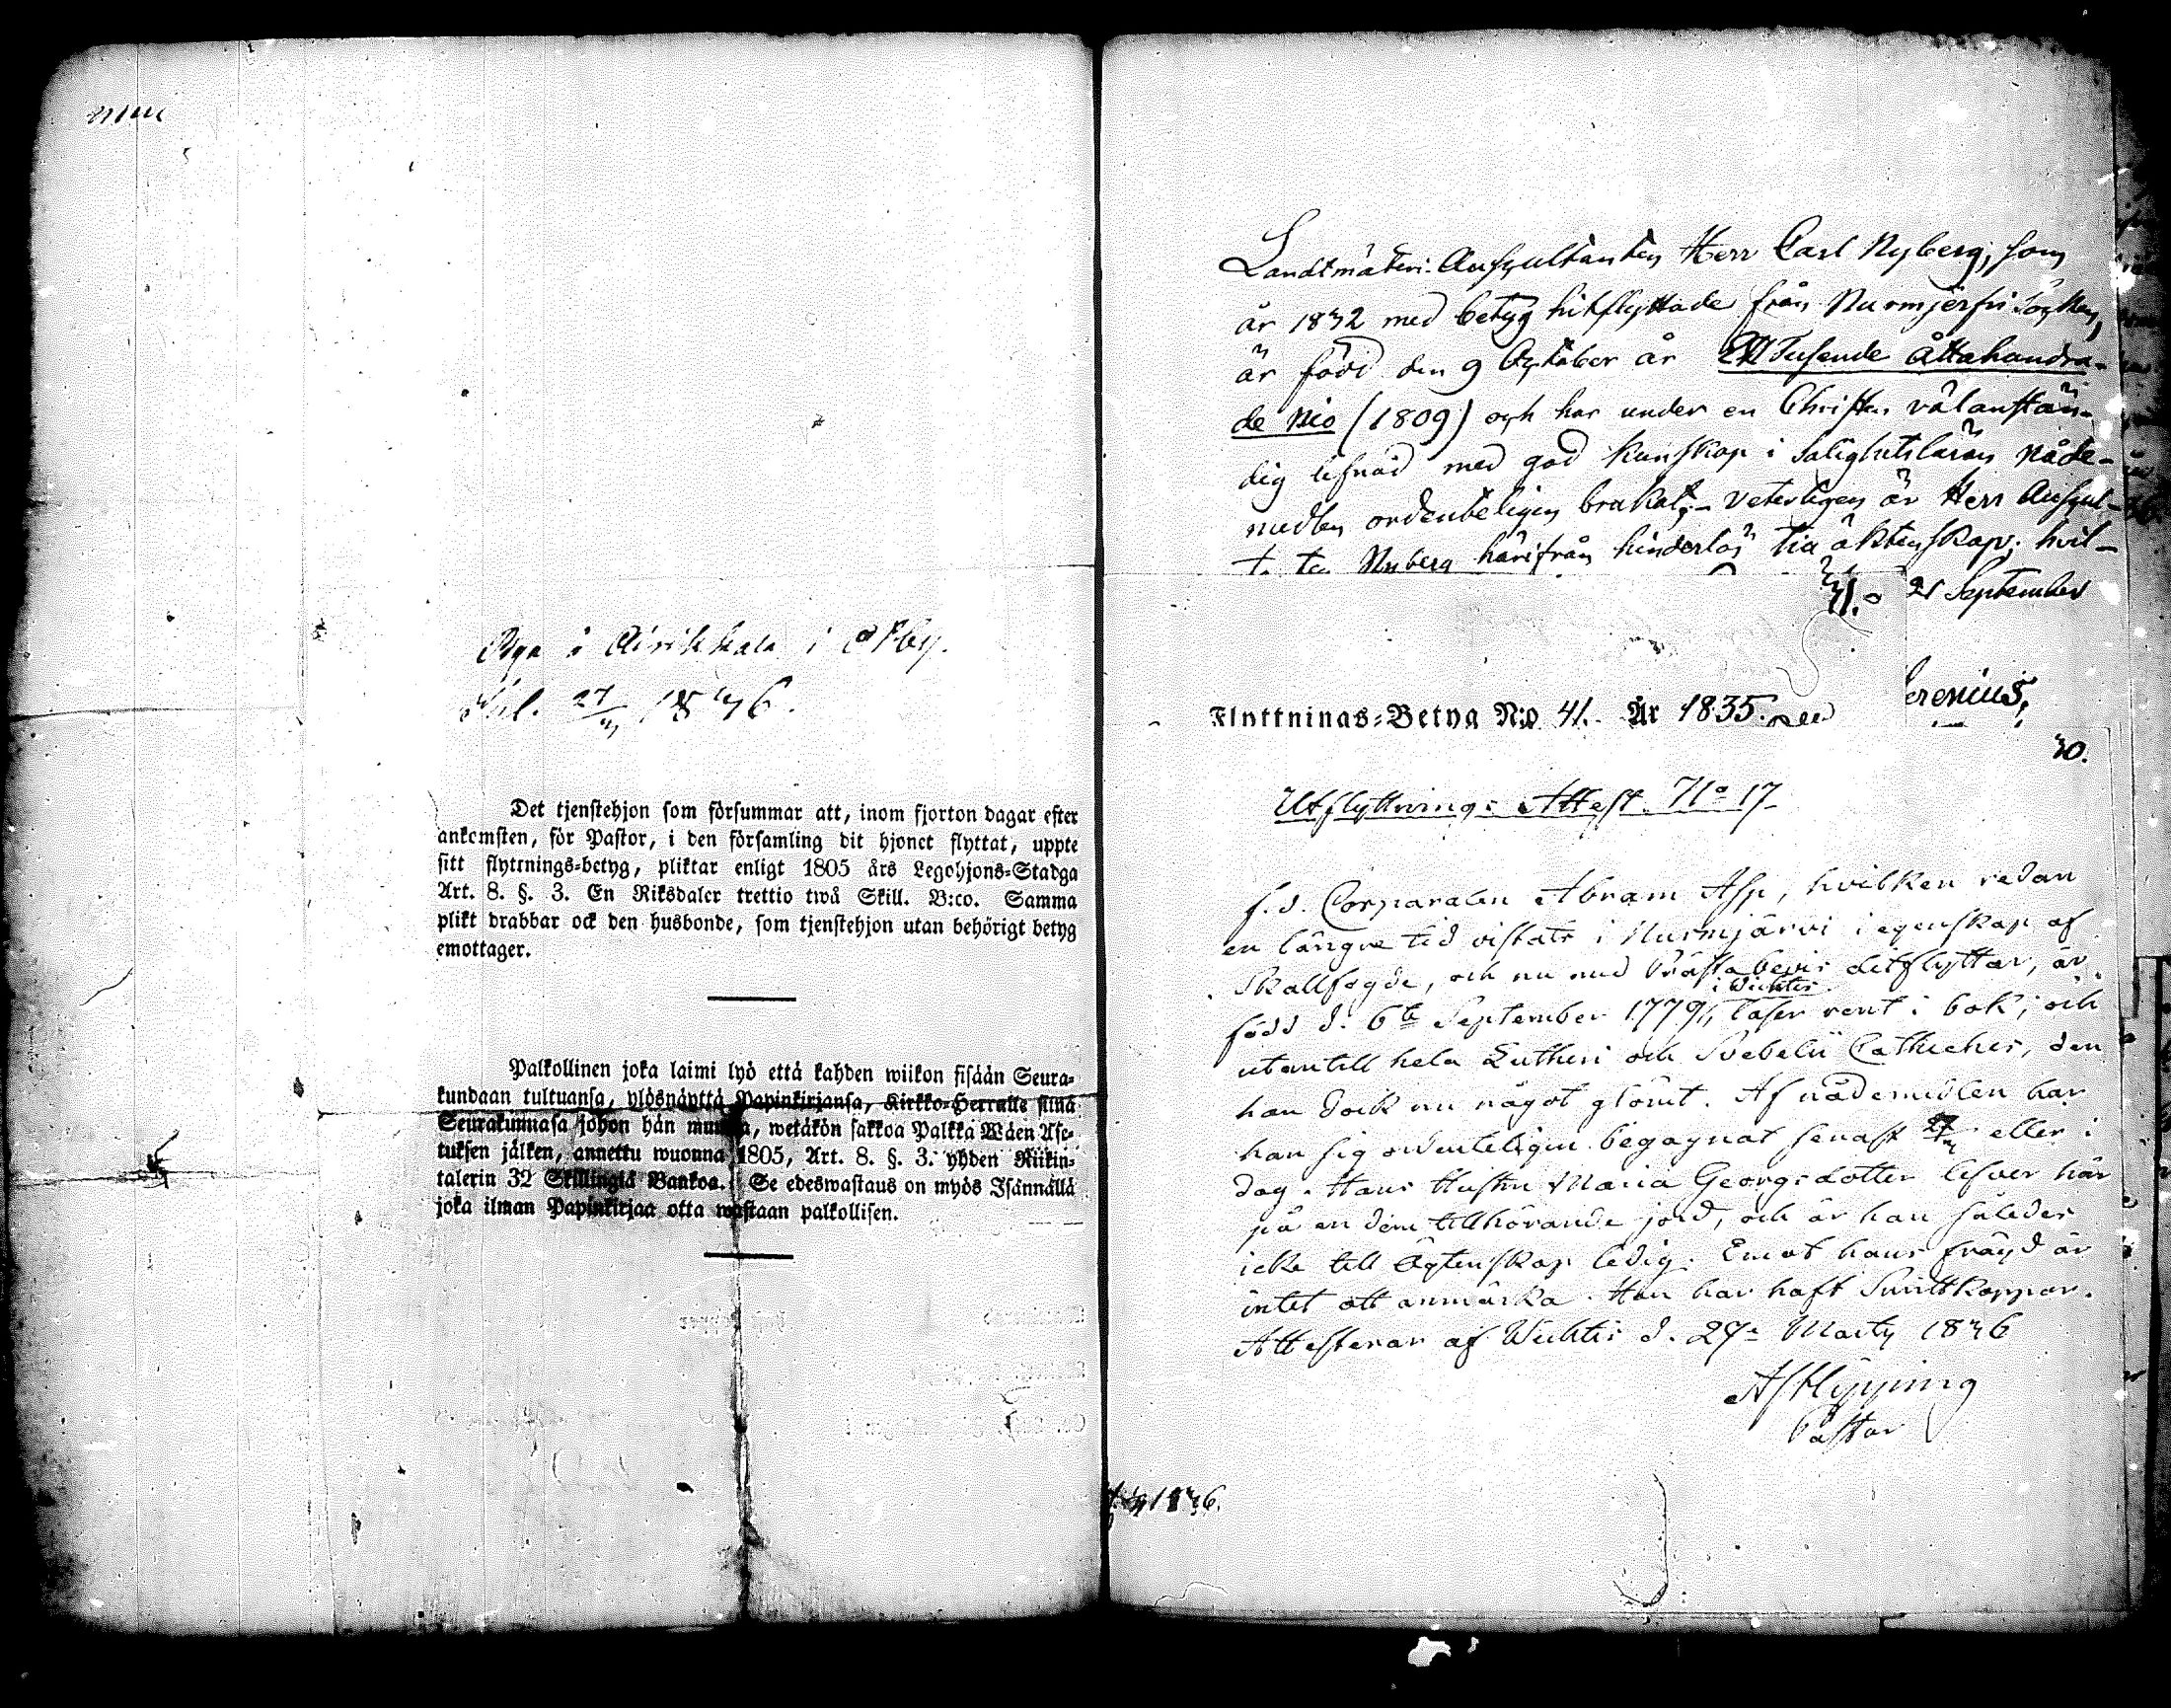 i by.
27 1836.
Det tjenstehjon som försummar att, inom fjorton dagar efter
ankomsten, för Pastor, i den församling dit hjonet flyttat, uppte
sitt flyttnings-betyg, pliktar enligt 1805 års Legohjons-Stadga
Art. 8. §. 3. En Riksdaler trettio twå Skill. B:co. Samma
plikt drabbar ock den husbonde, som tjenstehjon utan behörigt betyg
emottager.
Palkollinen joka laimi lyö että kahden wiikon sisään Seura-
kundaan tultuansa, ylösnäyttä Papinkirjansa, Kirkko-Herralle siinä
Seurakunnasa johon hän muutta, wetäkön sakkoa Palkka Wäen Ase-
tuksen jälken, annettu wuonna 1805, Art. 8. §. 3. yhden Riikin-
talerin 32 Skillingiä Bankoa. Se edeswastaus on myös Isännällä
joka ilman Papinkirjaa otta wastaan palkollisen.
Landtmäteri-Auscultanten Herr Carl Nyberg, som
år 1832 med betyg hitflyttade från Nurmjerfvi Socken,
är född den 9 October år Ett Tusende Åttahundra-
de Nio (1809) och har under en Christen välanstän-
dig lefnad med god kunskap i Salighetsläran Nåde-
medlen ordenteligen brukat; veterligen är Herr Auscul-
Nyberg härifrån hinderlös till äktenskap; hvil-
21 September
Flyttnings-Betyg N:o 41. År 1835.
erenius,
30.
Utflyttnings Attest. No 17.
f.d. Corporalen Abram Asp, hvilken redan
en längre tid vistats i Nurmijärvi i egenskap af
Skallfogde, och nu med Prästabevis ditflyttar, är
i Wichtis
född d. 6te September 1779, läser rent i bok, och
utantill hela Lutheri och Svebelii Catheches, den
han dock nu något glömt. Af nådemedlen har
han sig ordenteligen begagnat senast 27 eller i
dag. Hans Hustru Maria Georgsdotter lefver här
på en dem tillhörande jord, och är han således
icke till Ägtenskap ledig. Emot hans frägd är
intet att anmärka. Han har haft Smittkoppor.
Attesterar af Wichtis d. 27 Martij 1836
Hipping
Pastor
1836.